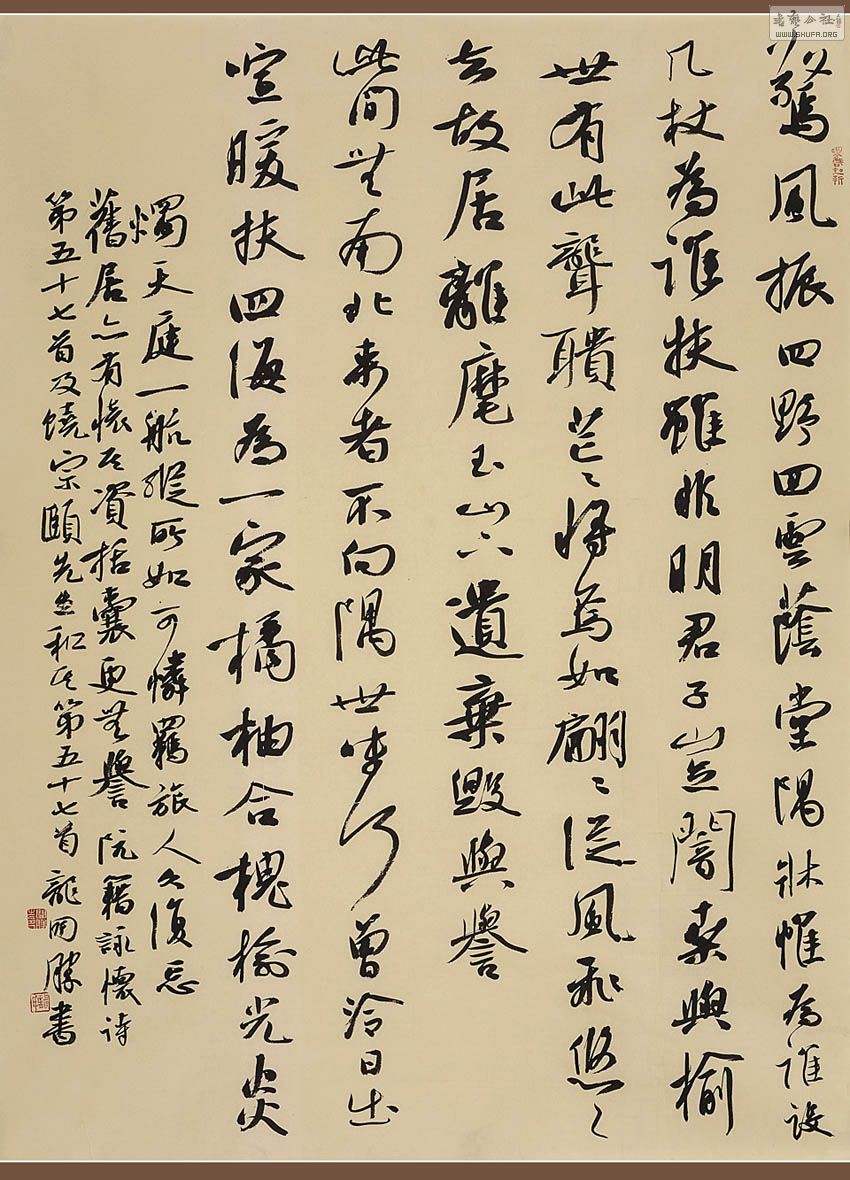 驚風振四野回雲蔭堂隅牀帷為誰設
几杖為誰扶雖非明君子豈闇桑與榆
世有此聾聵芒〻將焉如翩〻從風飛悠〻
去故居離麾玉山下遺棄毀與譽
此間無南北來者不向隅世味何曾冷日出
喧暖扶四海為一家橘柚合槐榆光炎
燭天庭一航縱所如可憐羈旅人久復忘
舊居亦有懷其資括囊更無譽 阮籍詠懷詩
第五十七首及饒宗頤先生和其第五十七首 龍開勝書
書藝公社
WWW.SHUFA.ORG